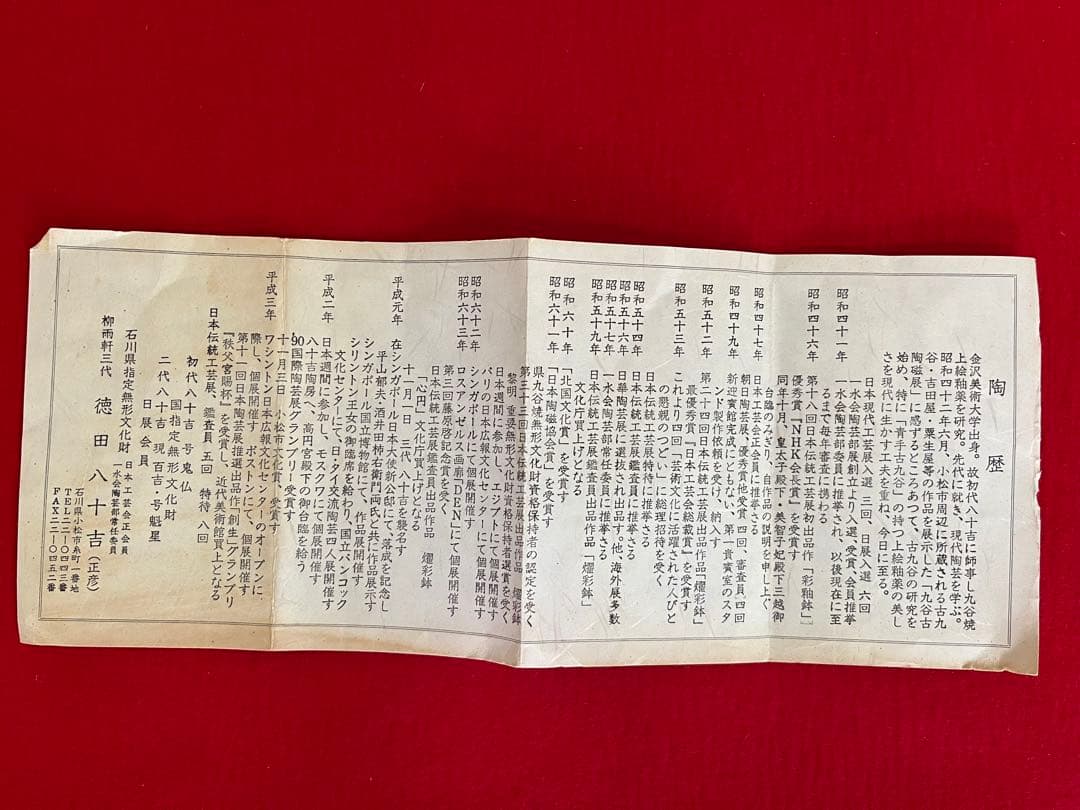 陶歴
金沢美術大学出身。故初代八十吉に師事し九谷焼
上絵釉薬を研究。先代に就き、現代陶芸を学ぶ。
昭和四十二年六月、小松市周辺に所蔵される古九
谷・吉田屋・粟生屋等の作品を展示した「九谷古
陶磁展」に感ずるところあつて、古九谷の研究を
始め、特に「青手古九谷」の持つ上絵釉薬の美し
さを現代に生かす工夫を重ね、今日に至る。
日本現代工芸展入選 三回、日展入選 六回
昭和四十一年 一水会陶芸部展創立より入選、受賞、会員推挙
一水会陶芸部委員に推挙され、以後現在に至
るまで毎年審査に携わる
昭和四十六年 第十八回日本伝統工芸展初出品作「彩釉鉢」
優秀賞「NHK会長賞」を受賞す
同年十月、皇太子殿下・美智子妃殿下三越御
台臨のみぎり、自作品の説明を申し上ぐ
昭和四十七年 日本工芸会正会員に推挙さる
朝日陶芸展最優秀賞他受賞 四回、審査員 四回
昭和四十九年 新迎賓館完成にともない、第一貴賓室のスタ
ンド製作依頼を受け、納入す
昭和五十二年 第二十四回日本伝統工芸展出品作「燿彩鉢」
最優秀賞『日本工芸会総裁賞』を受賞す
昭和五十三年 これより四回「芸術文化に活躍された人びと
の懇親のつどい」に総理招待を受く
文化庁買上げとなる
昭和五十四年 日本伝統工芸展特待に推挙さる
昭和五十六年 日本伝統工芸展鑑査委員に推挙さる
昭和五十七年 日華陶芸展に選抜され出品す。他、海外展多数
一水会陶芸部常任委員に推挙さる
昭和五十九年 日本伝統工芸展鑑査員出品作品「燿彩鉢」
文化庁買上げとなる
昭和六十年 「北国文化賞」を受賞す
昭和六十一年 「日本陶磁協会賞」を受賞す
県九谷焼無形文化財資格保持者の認定を受く
第三十三回日本伝統工芸展出品作品「燿彩鉢
黎明」重要無形文化財資格保持者選賞を受く
日本週間に参加し、エジプトにて個展開催す
パリの日本広報文化センターにて個展開催す
昭和六十二年 シンガポールにて個展開催す
昭和六十三年 ロスアンゼルス画廊「DEN」にて個展開催す
第三回藤原啓記念賞を受く
日本伝統工芸展鑑査員出品作品 燿彩鉢
「心円」文化庁買上げとなる
十一月一日 三代 八十吉を襲名す
平成元年 在シンガポール日本大使新公邸にて落成を記念し
平山郁夫・酒井田柿右衛門両氏と共に作品展示す
シンガポール国立博物館にて、作品展開催す
シリントン王女の御臨席を給わり、国立バンコック
文化センターにて、日・タイ交流陶芸四人展開催す
平成二年 日本週間に参加し、モスクワにて個展開催す
八十吉陶房へ、高円宮殿下の御台臨を給う
'90国際陶芸展グランプリー受賞す
十一月三日 小松市文化賞」受賞す
平成三年 ワシントン日本広報文化センターのオープンに
際し、個展開催す。ボストンにて、個展開催す
第十一回日本陶芸展推選出品作「創生」グランプリ
『秩父宮賜杯』を受賞し、近代美術館買上となる
日本伝統工芸展、鑑査員 五回 特待 八回
初代 八十吉 号 鬼仏
国指定無形文化財
二代 八十吉 現 百吉・号 魁星
日展会員
石川県指定無形文化財
日本工芸会正会員
一水会陶芸部常任委員
柳雨軒三代 徳田八十吉(正彦)
石川県小松市糸町一番地
TEL二二-〇四四三番
FAX二二-〇四五二番